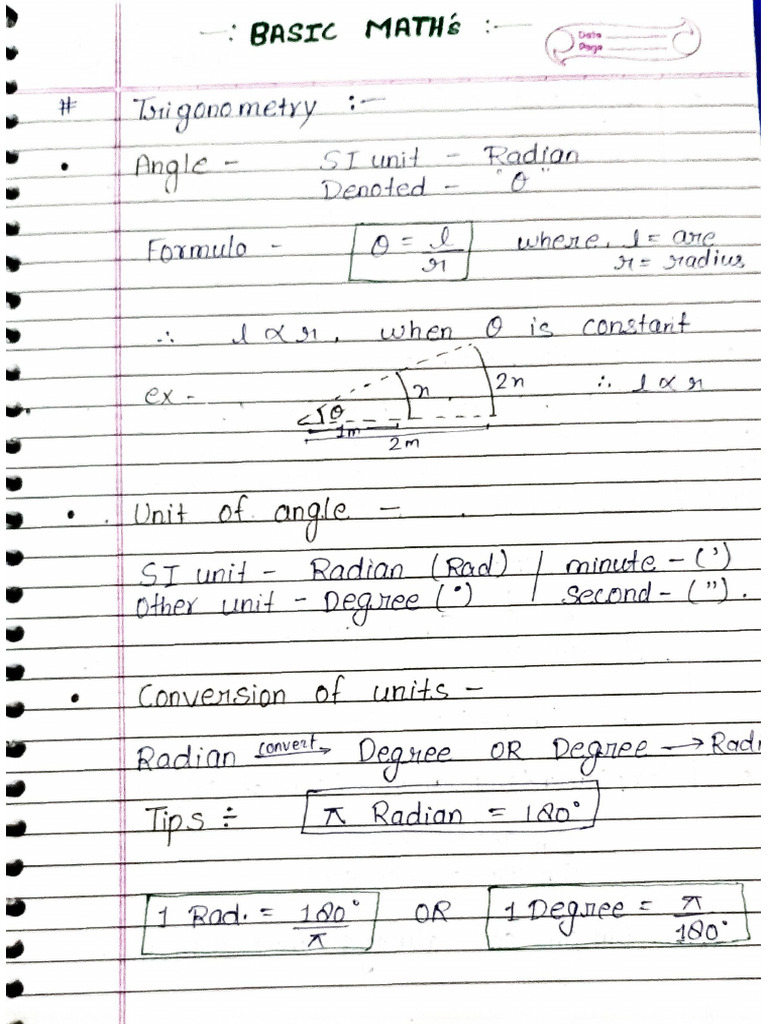 -: BASIC MATH's :-
Date
Page
# Trigonometry :-
• Angle - SI unit - Radian
Denoted - "θ"
Formulo - θ = l/r where, l = arc
r = radius
∴ l ∝ r, when θ is constant
ex - θ x 2x ∴ l ∝ r
1m
2m
• Unit of angle -
SI unit - Radian (Rad) / minute - (')
Other unit - Degree (°) / second - (").
• Conversion of units -
Radian convert→ Degree OR Degree → Radi
Tips ÷ π Radian = 180°
1 Rad. = 180°/π OR 1 Degree = π/180°